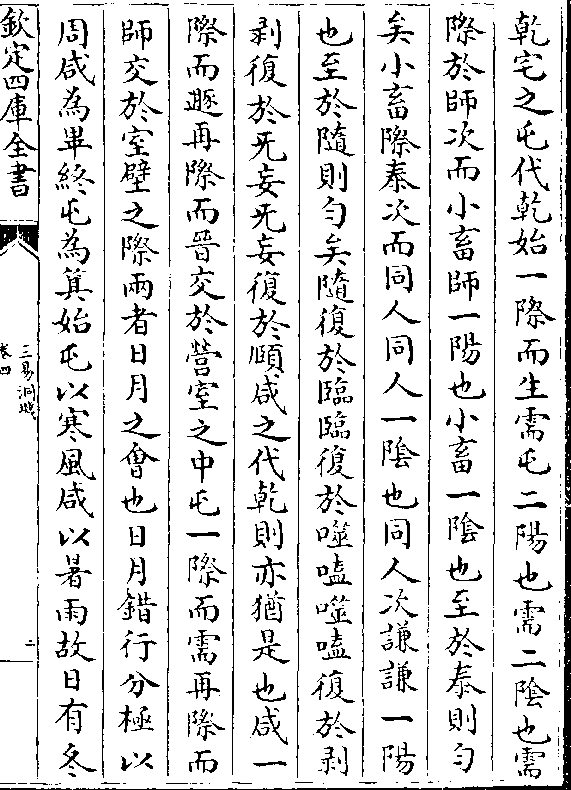 乾宅之屯代乾始一際而生需屯二陽也需二隂也需
際於師次而小畜師一陽也小畜一隂也至於泰則匀
矣小畜際泰次而同人同人一隂也同人次謙謙一陽
也至於隨則匀矣隨復於臨臨復於噬嗑噬嗑復於剥
剥復於旡妄旡妄復於頤咸之代乾則亦猶是也咸一
際而遯再際而晉交於營室之中屯一際而需再際而
師交於室壁之際兩者日月之會也日月錯行分極以
周咸為畢終屯為箕始屯以寒風咸以暑雨故日有冬
欽定四庫全書
三易洞璣
卷四
二